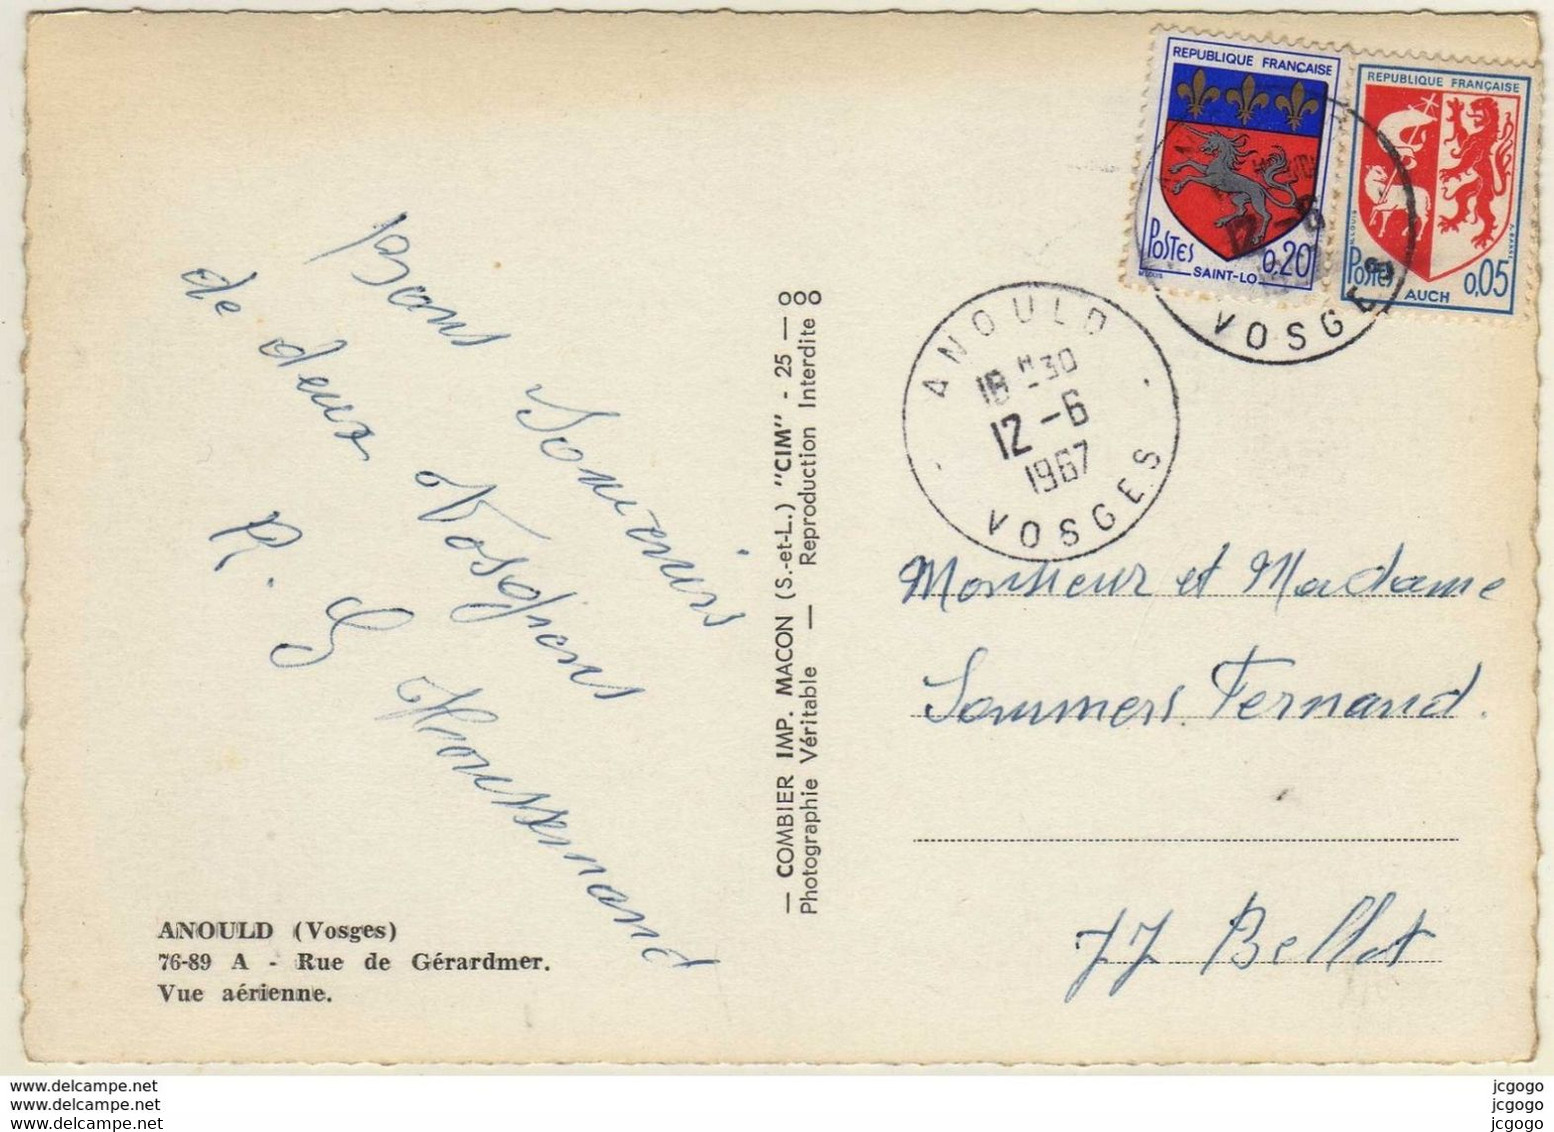 Bons Souvenirs
de deux Vosgiens
R. G Houssemand
ANOULD (Vosges)
76-89 A - Rue de Gérardmer.
Vue aérienne.
— COMBIER IMP. MACON (S.-et-L.) "CIM" - 25 —
Photographie Véritable — Reproduction Interdite
REPUBLIQUE FRANÇAISE
POSTES 0,20
SAINT-LO
REPUBLIQUE FRANÇAISE
POSTES 0,05
AUCH
12-6
VOSGES
ANOULD
18 H30
12-6
1967
VOSGES
Monsieur et Madame
Sommers Fernand.
77 Bellot
www.delcampe.net
www.delcampe.net
www.delcampe.net
jcgogo
jcgogo
jcgogo